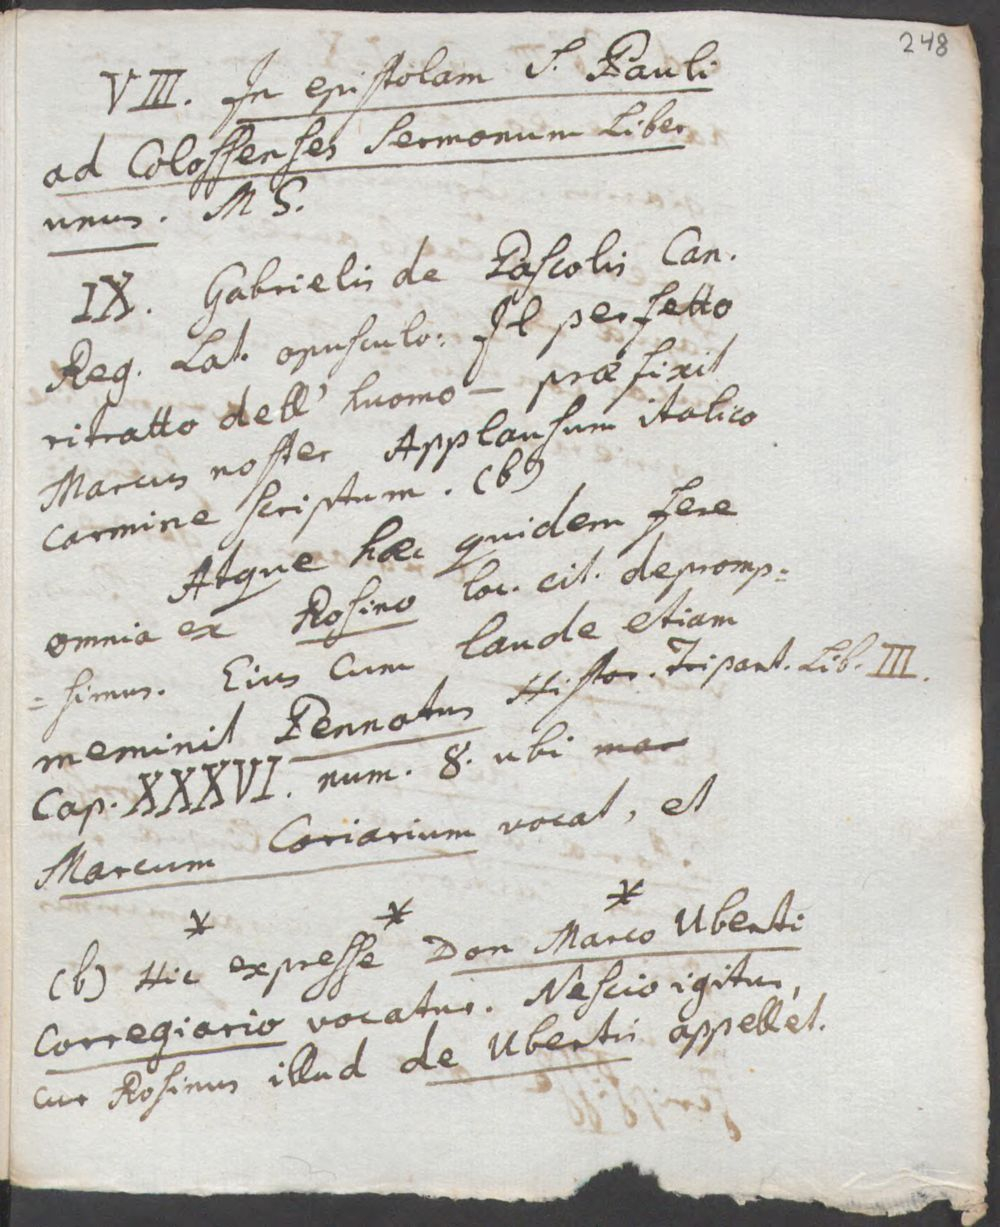 248
VIII. In epistolam S. Pauli
ad Colossenses Sermonum Liber
unus. MS.
IX. Gabrielis de Pascolis Can.
Reg. Lat. opusculo: Il perfetto
ritratto dell' huomo — præfixit
Marcus noster Applausum italico
carmine scriptum. (b)
Atque hæc quidem fere
omnia ex Rosino loc. cit. depromp=
=simus. Eius cum laude etiam
meminit Pennotus Histor. Tripart. Lib. III.
Cap. XXXVI. num. 8. ubi mar
Marcum Coriarium vocat, et
* * *
(b) Hic expresse Don Marco Uberti
Corregiario vocatur. Nescio igitur,
cur Rosinus illud de Ubertis appellet.